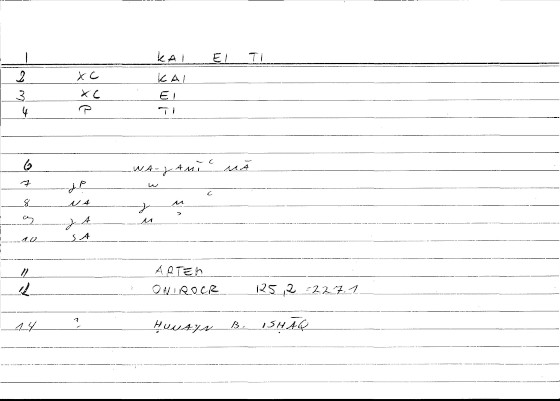 1 KAI EI TI
2 XC KAI
3 XC EI
4 P TI
6 WA-JAMĪʿ MĀ
7 JP W
8 NA J M ʿ
9 JA M ʾ
10 SA
11 ARTEM
12 ONIROCR 125,2 -227.1
14 ? ḤUNAYN B. ISḤĀQ